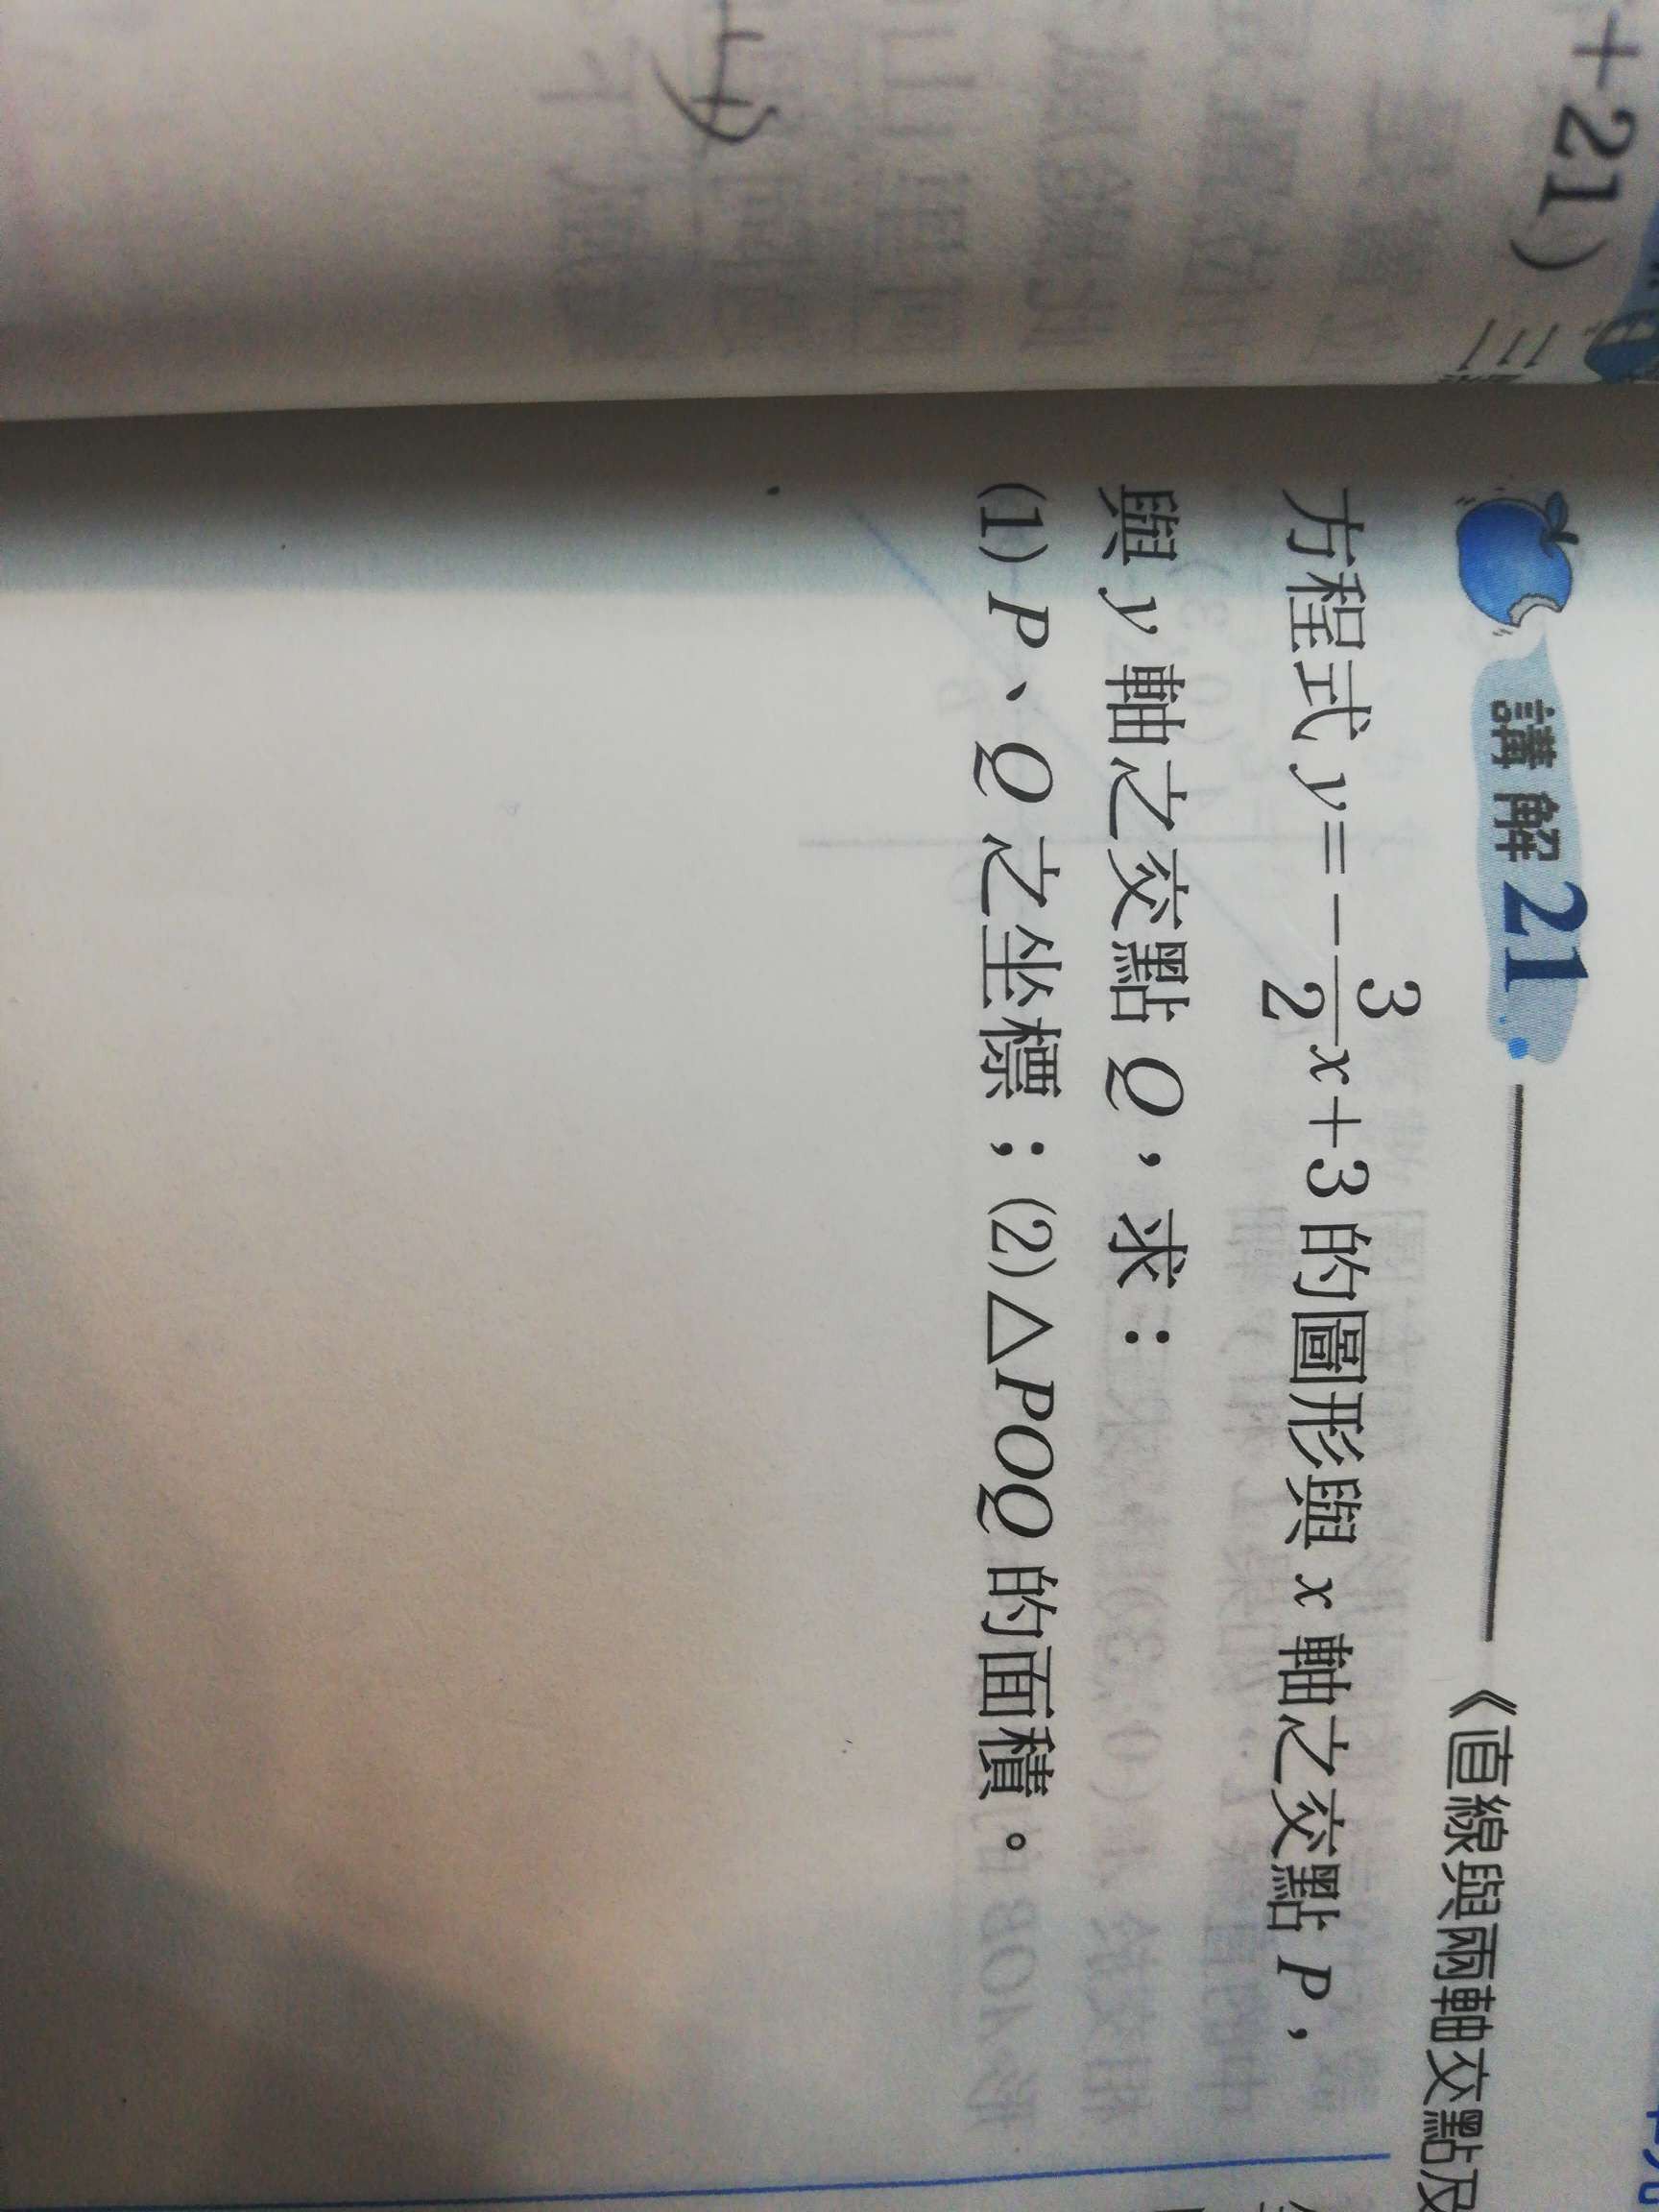 +21)
講解21
《直線與兩軸交點及
方程式 y=-3/2x+3 的圖形與 x 軸之交點 P，
與 y 軸之交點 Q，求：
(1) P、Q 之坐標；(2)△POQ 的面積。